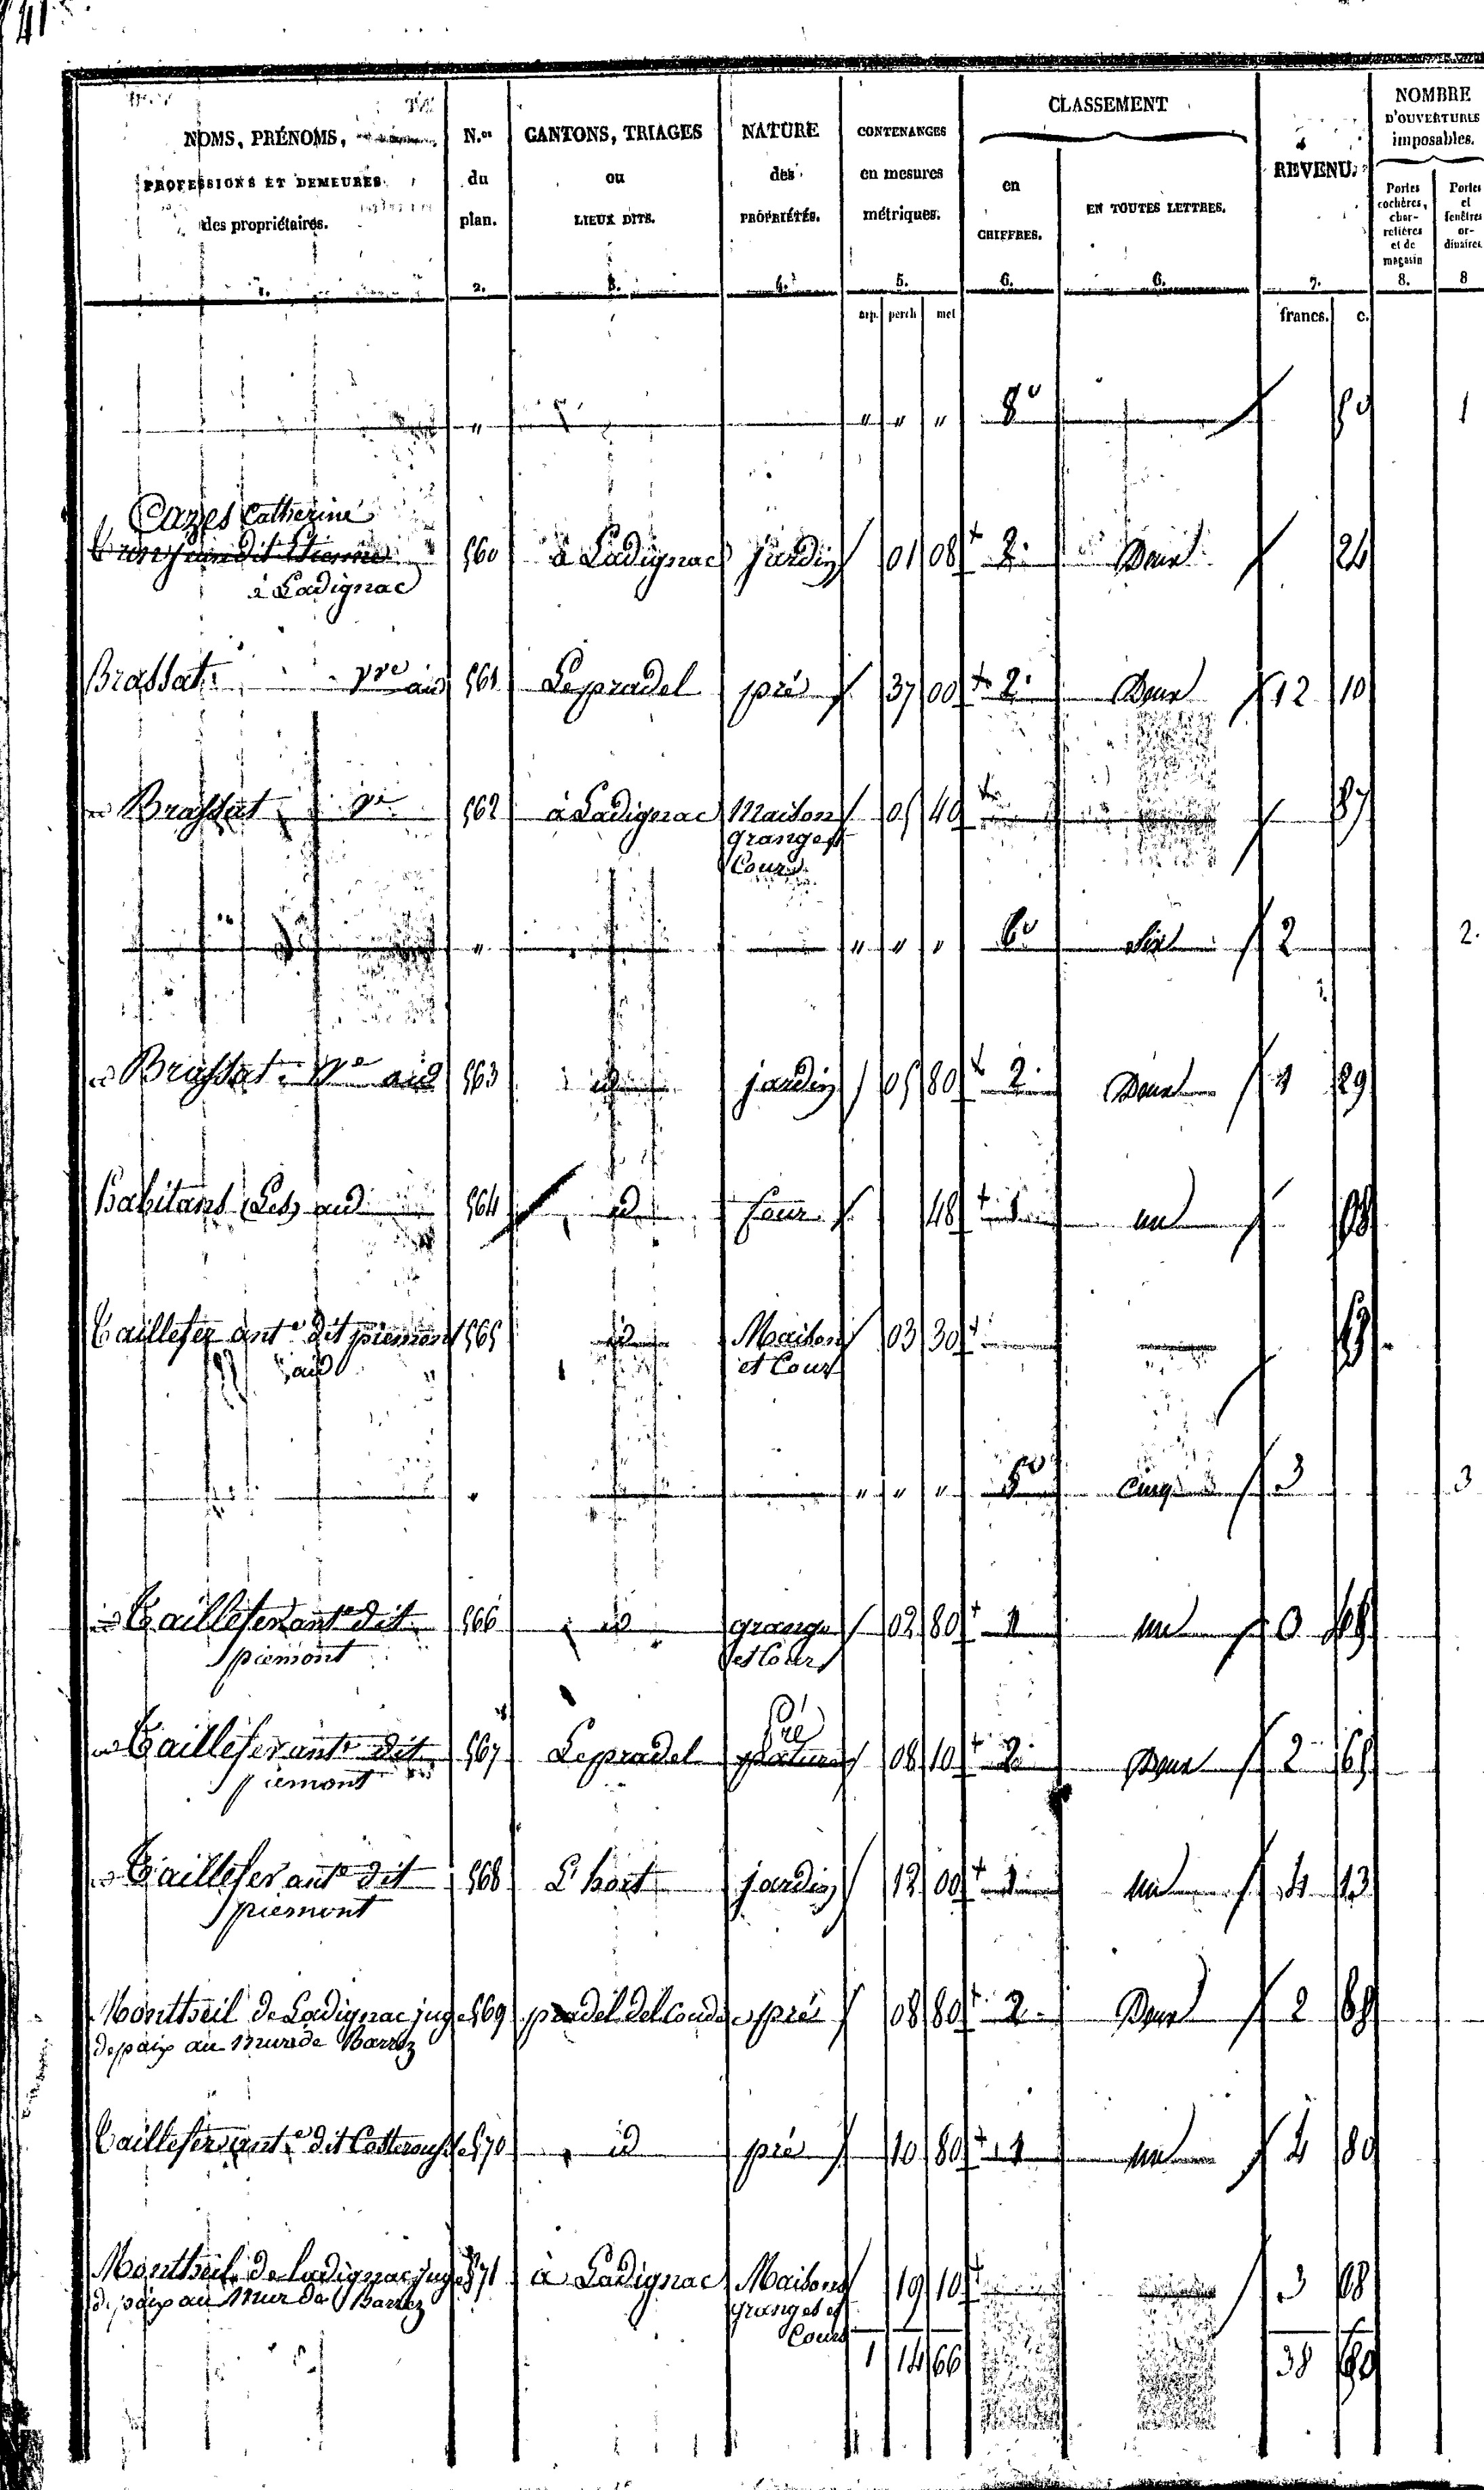 41
NOMS, PRÉNOMS,
PROFESSIONS ET DEMEURES
des propriétaires.
1.
N.os
du
plan.
2.
CANTONS, TRIAGES
ou
LIEUX DITS.
3.
NATURE
des
PROPRIÉTÉS.
4.
CONTENANCES
en mesures
métriques.
5.
arp. perch met
CLASSEMENT
en
CHIFFRES.
6.
EN TOUTES LETTRES.
6.
REVENU.
7.
francs. c.
NOMBRE
D'OUVERTURES
imposables.
Portes
cochères,
char-
retières
et de
magasin
8.
Portes
et
fenêtres
or-
dinaires
8
" " " " 8e 1
Cazes Catherine
à Ladignac
560 à Ladignac jardin 01 08 2. Deux 24
Brassat Vve aud 561 Lepradel pré 37 00 2. Deux 12 10
Brassat Ve 562 à Ladignac Maison 05 40 87
granges
Cour
" " " " 6e Six 2 2.
Brassat Ve aud 563 id jardin 05 80 2. Deux 1 29
habitans (Les) aud 564 id four 48 1 un
Taillefer ante dit piemont 565 id Maison 03 30
aud et Cour
" " " " 5e Cinq 3 3
Taillefer ante dit 566 id grange 02 80 1 un 0
piemont et Cour
Pré
Taillefer ante dit 567 Lepradel pature 08 10 2. Deux 2 65
piemont
Taillefer ante dit 568 L'hort jardin 12 00 1 un 4 13
piemont
Montheil de Ladignac juge 569 pradel del coude pré 08 80 2. Deux 2 89
depaix au Mur de Barrez
Taillefer ante dit 570 id pré 10 80 1 un 4 80
Montheil de ladignac juge 571 à Ladignac Maison 19 10 3 68
de paix au Mur de Barrez granges et
Cour
1 14 66 38